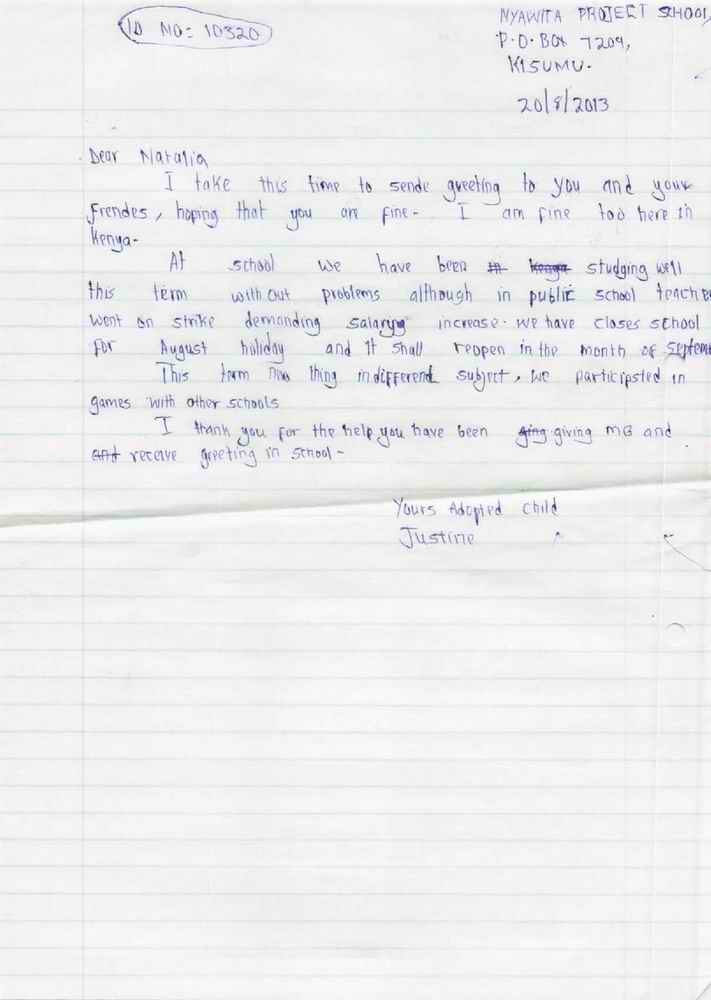 ID NO: 10320
NYAWITA PROJECT SCHOOL,
P.O. BOX 7209,
KISUMU.
20/8/2013
Dear Natalia
I take this time to sende greeting to you and your
Frendes, hoping that you are fine. I am fine too here in
Kenya.
At school we have been in Kenya studging well
this term with out problems although in public school teache
went on strike demanding salaryy increase. We have closes school
for August holiday and it shall reopen in the month of Septem
This term new thing in differend subject, we participsted in
games with other schools
I thank you for the help you have been ging giving me and
and receive greeting in school -
Yours Adopted child
Justine